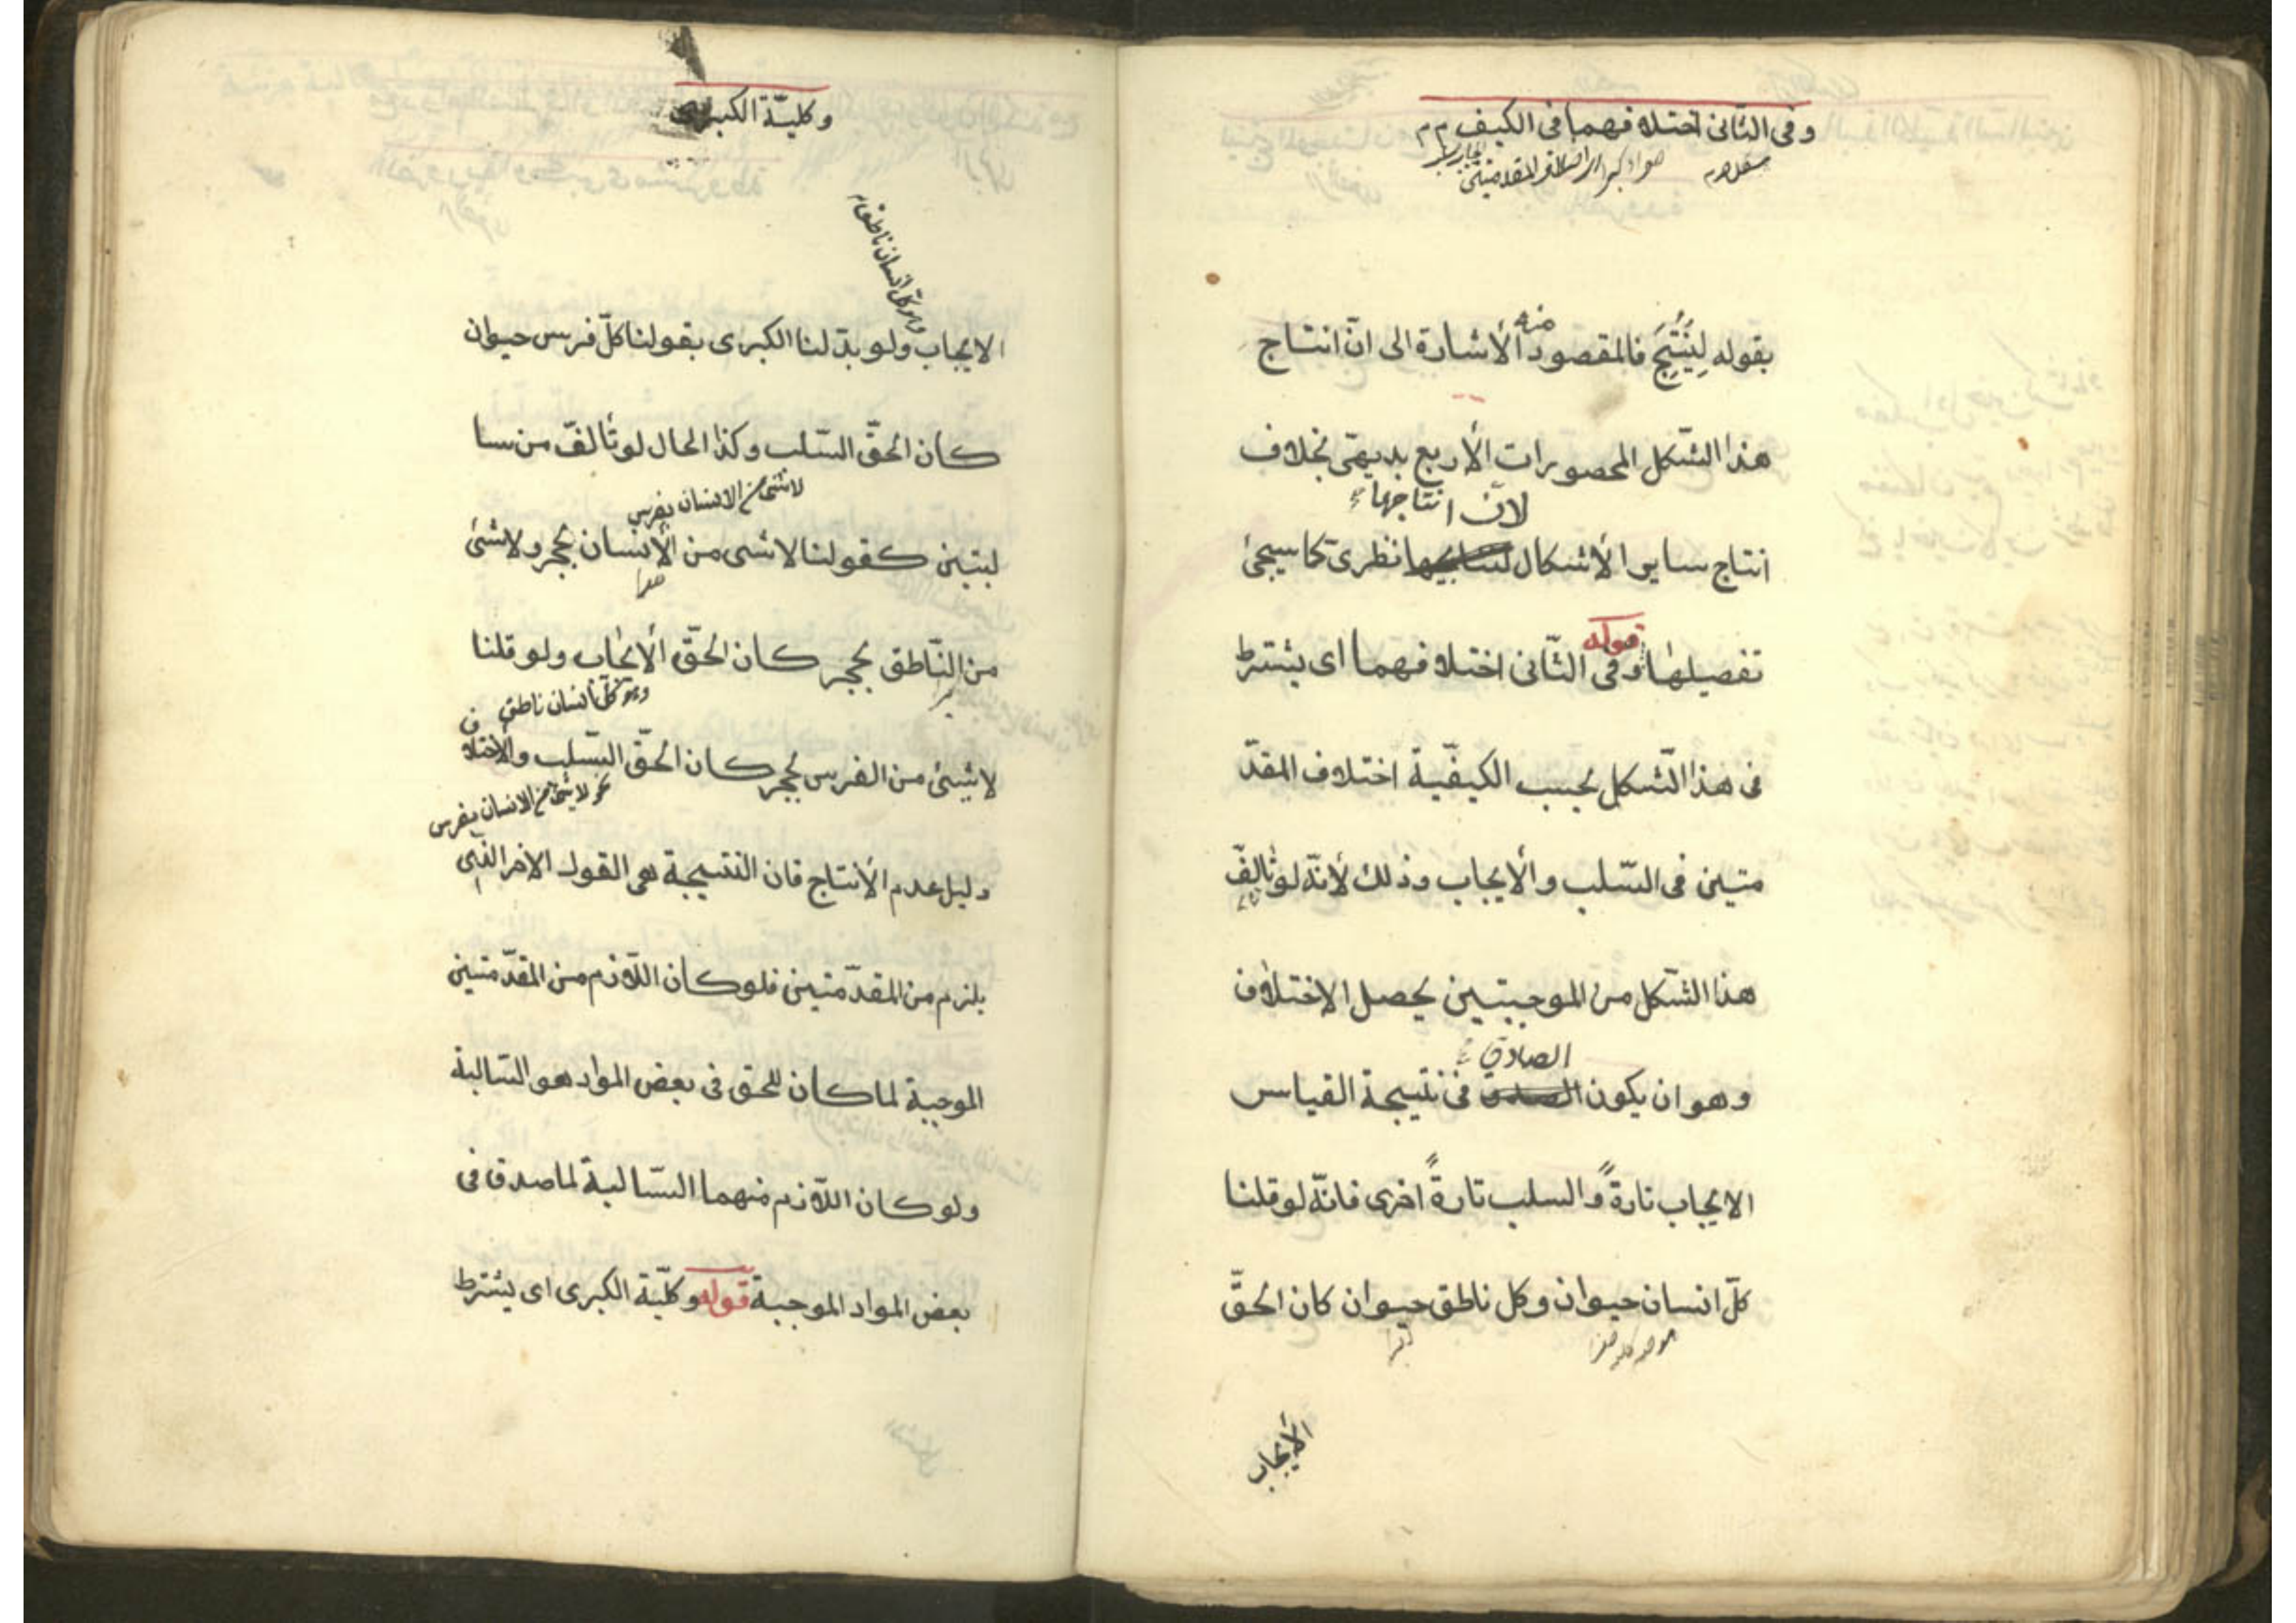 وفى الثانى اختلافهما فى الكيف
بقوله لِيُنْتِجَ فالمقصود منه الأشارة الى انّ انتاج
هذا الشّكل المحصورات الأربع بديهىّ بخلاف
لانّ انتاجها
انتاج ساير الأشكال نظرى كما سيجئ
تفصيلها قوله وفى الثّانى اختلافهما اى يشترط
فى هذا الشّكل بحسب الكيفيّة اختلاف المقدّ
متين فى السّلب والأيجاب وذلك لأنّه لو تالّف
هذا الشّكل من الموجبتين يحصل الاختلاف
الصادق
وهو ان يكون فى نتيجة القياس
الايجاب تارةً والسلب تارةً اخرى فانّه لو قلنا
كلّ انسان حيوان وكل ناطق حيوان كان الحقّ
موجبه كليه صغرا
كبرا
الأيجاب
وكليّة الكبرى
وهو كلّ انسان ناطق
الايجاب ولو بدّلنا الكبرى بقولنا كلّ فرس حيوان
كان الحقّ السّلب وكذا الحال لو تألفّ من سا
لا شئ من الانسان بفرس
لبتين كقولنا لا شى من الأنسان بحجر ولا شئ
صغرا
من النّاطق بحجر كان الحقّ الأيجاب ولو قلنا
وهو كلّ انسان ناطق
لا شئ من الفرس بحجر كان الحقّ السّلب والأختلاف
نحو لا شئ من الانسان بفرس
دليل عدم الأنتاج فان النتيجة هى القول الاخر الذى
يلزم من المقدّمتين فلو كان اللّازم من المقدّمتين
الموجبة لما كان الحق فى بعض المواد هو السّالبة
ولو كان اللّازم منهما السّالبة لما صدق فى
بعض المواد الموجبة قوله وكليّة الكبرى اى يشترط